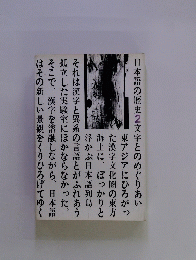 日本語の歴史2文字とのめぐりあい
東アジアにひろがっ
た漢字文化圏の東方
海上に、ぽっかりと
浮かぶ日本語列島
それは漢字と異系の言語とがふれあう
孤立した実験室にほかならなかった。
そこで、漢字を溶融しながら、日本語
はその新しい景観をくりひろげてゆく